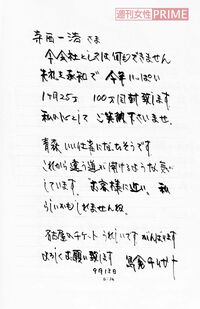 週刊女性PRIME
寺西一浩さま
今会社としては何もできません
失礼を承知で今年いっぱい
1ヶ月25万 100万円封筒致します
私からとして ご笑納下さいませ。
青森 いい仕事になりそうです
これから違う道が開けるような気が
しています。お客様に近い、私
らしいかもしれませんね。
名古屋のチケットうれしいです がんばります
よろしくお願い致します 島倉千代子
9月12日